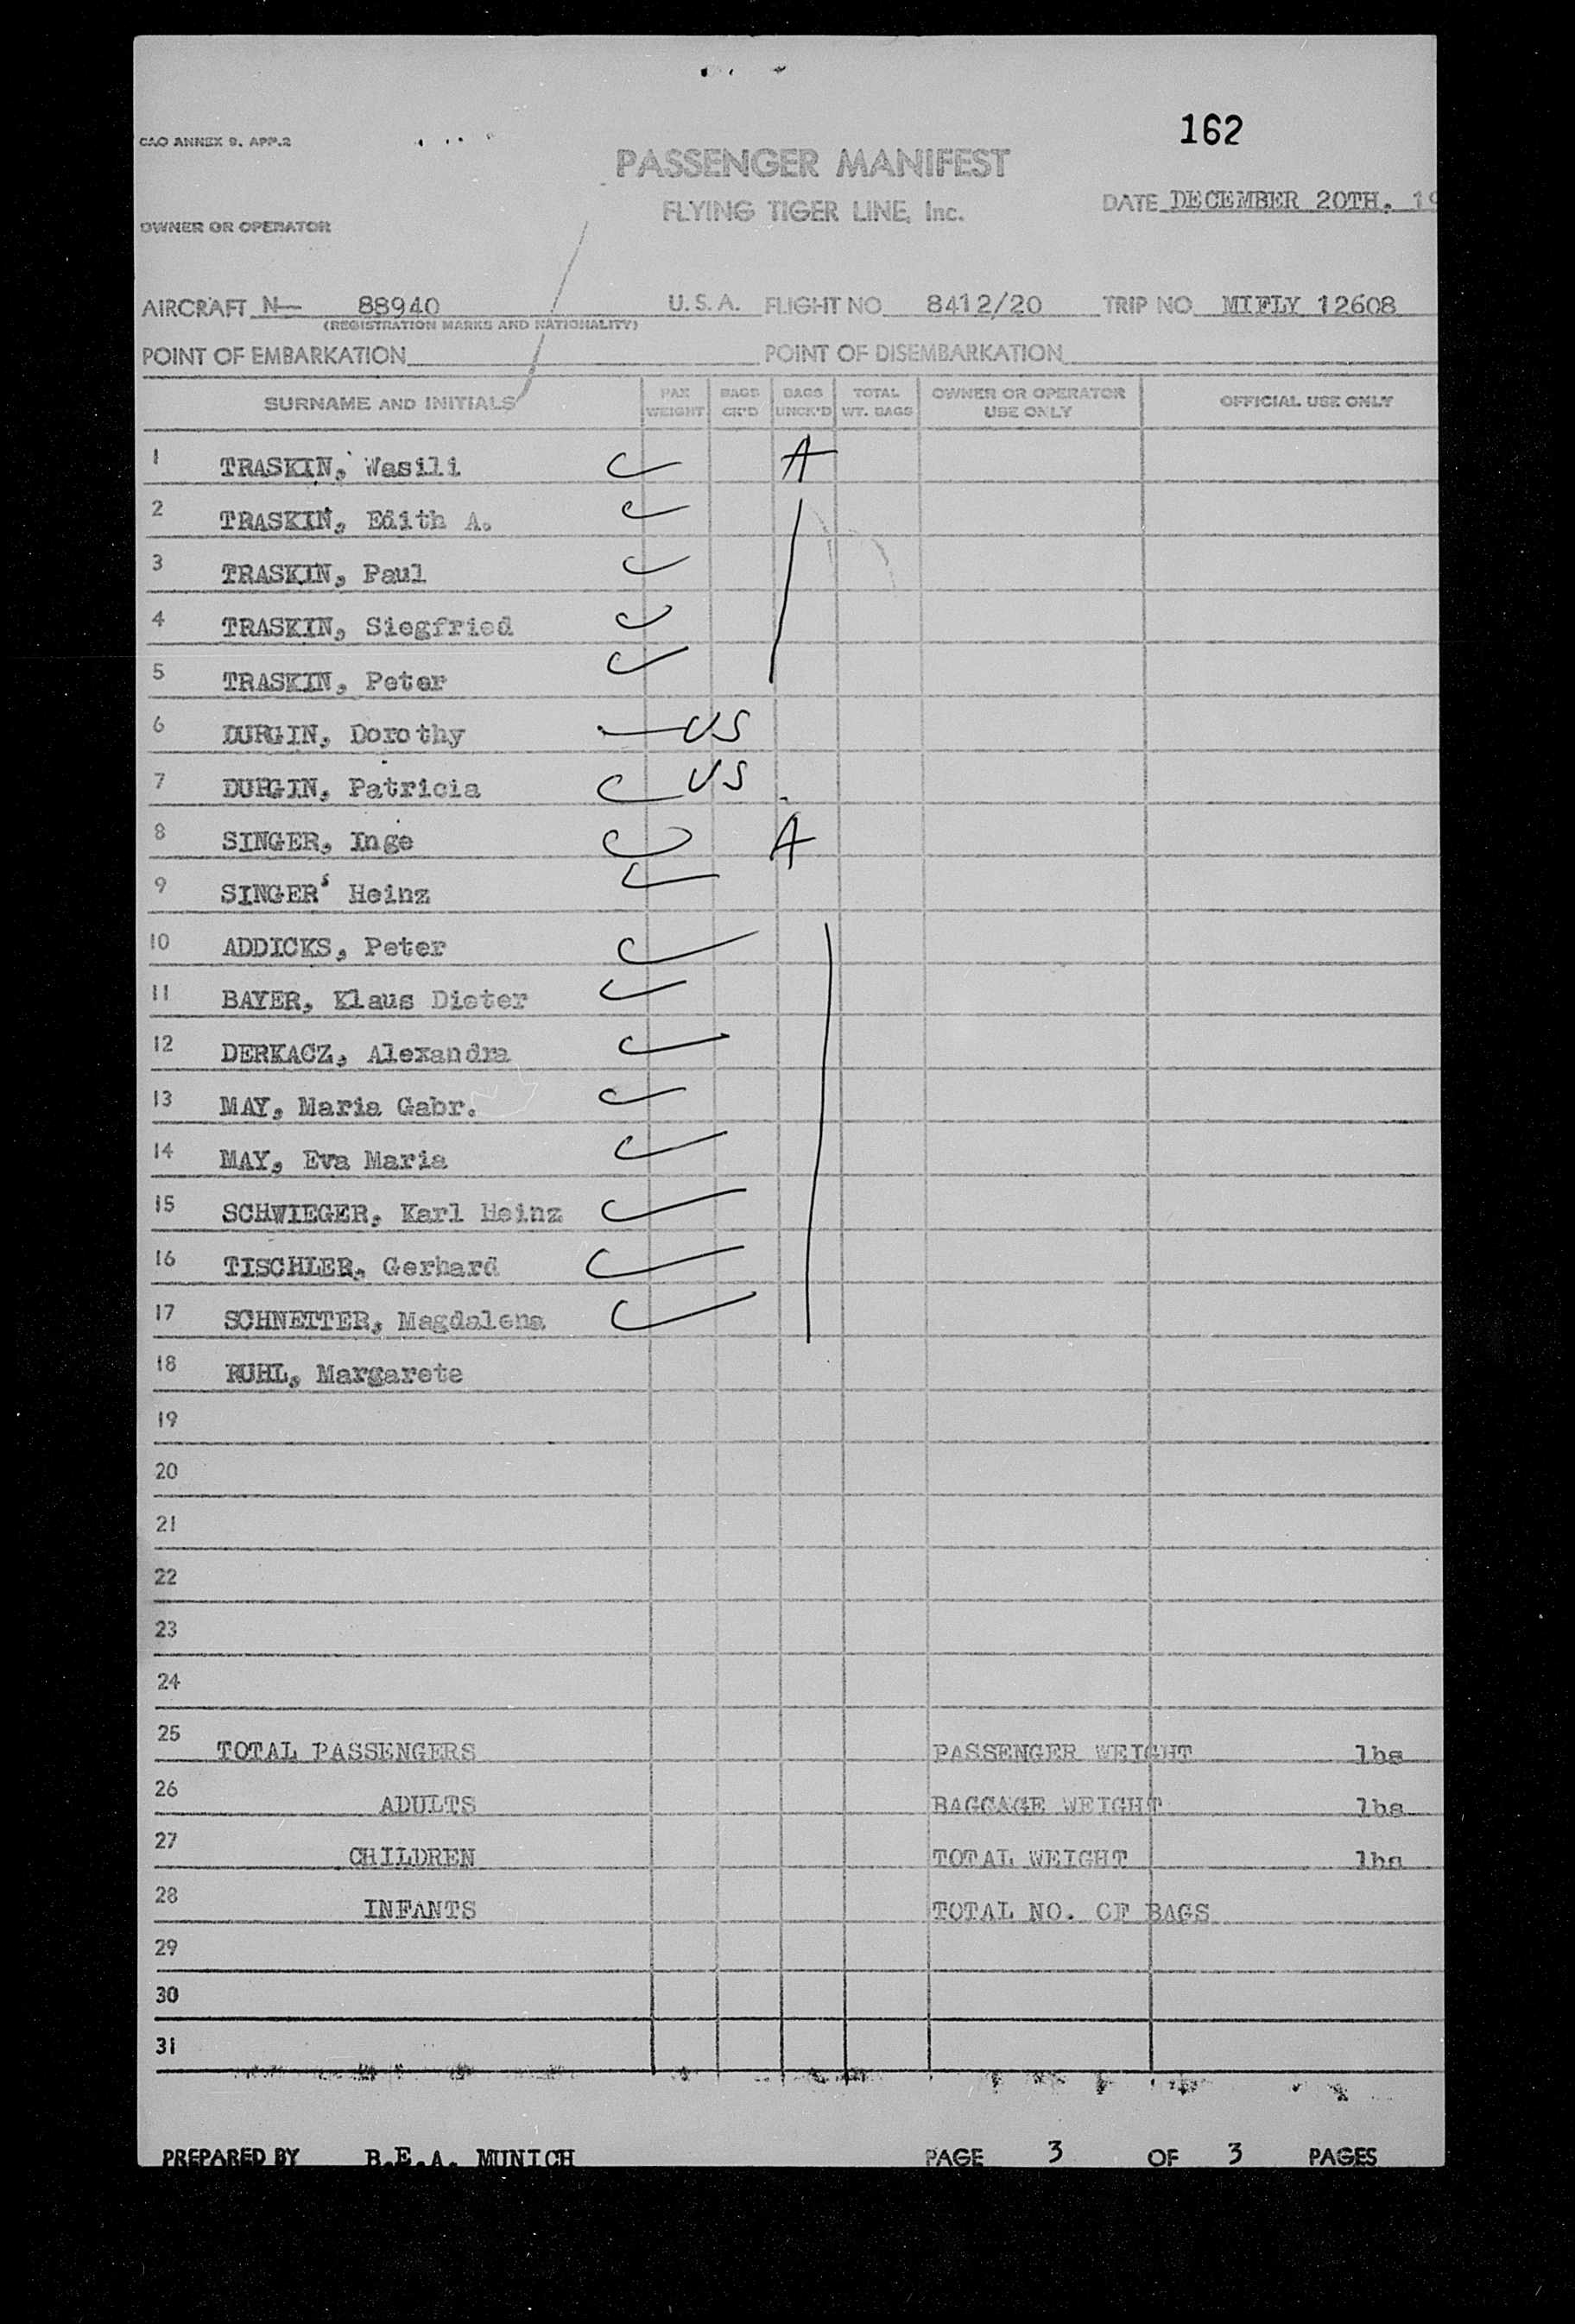 162
CAO ANNEX 9. APP.2
PASSENGER MANIFEST
FLYING TIGER LINE, Inc.
DATE DECEMBER 20TH. 19
OWNER OR OPERATOR
AIRCRAFT N— 88940 U.S.A. FLIGHT NO 8412/20 TRIP NO MIFLY 12608
(REGISTRATION MARKS AND NATIONALITY)
POINT OF EMBARKATION POINT OF DISEMBARKATION
SURNAME AND INITIALS PAX WEIGHT BAGS CK'D BAGS UNCK'D TOTAL WT. BAGS OWNER OR OPERATOR USE ONLY OFFICIAL USE ONLY
1 TRASKIN, Wasili A
2 TRASKIN, Edith A.
3 TRASKIN, Paul
4 TRASKIN, Siegfried
5 TRASKIN, Peter
6 DURGIN, Dorothy US
7 DURGIN, Patricia US
8 SINGER, Inge A
9 SINGER' Heinz
10 ADDICKS, Peter
11 BAYER, Klaus Dieter
12 DERKACZ, Alexandra
13 MAY, Maria Gabr.
14 MAY, Eva Maria
15 SCHWIEGER, Karl Heinz
16 TISCHLER, Gerhard
17 SCHNETTER, Magdalena
18 RUHL, Margarete
19
20
21
22
23
24
25 TOTAL PASSENGERS PASSENGER WEIGHT lbs
26 ADULTS BAGGAGE WEIGHT lbs
27 CHILDREN TOTAL WEIGHT lbs
28 INFANTS TOTAL NO. OF BAGS
29
30
31
PREPARED BY B.E.A. MUNICH PAGE 3 OF 3 PAGES